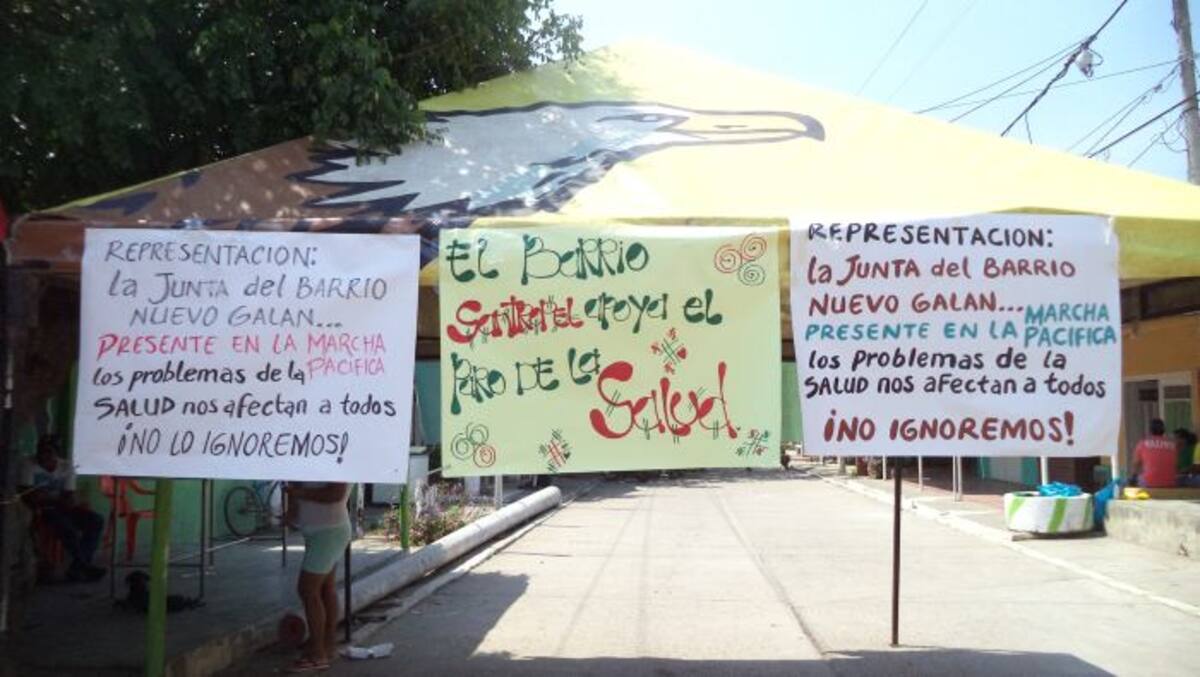 REPRESENTACION:
la JUNTA del BARRIO
NUEVO GALAN...
PRESENTE EN LA MARCHA
PACIFICA
los problemas de la
SALUD nos afectan a todos
¡NO LO IGNOREMOS!
El Barrio
apoya el
Paro DE la
Salud
REPRESENTACION:
la JUNTA del BARRIO
NUEVO GALAN...
PRESENTE EN LA MARCHA
PACIFICA
los problemas de la
SALUD nos afectan a todos
¡NO IGNOREMOS!